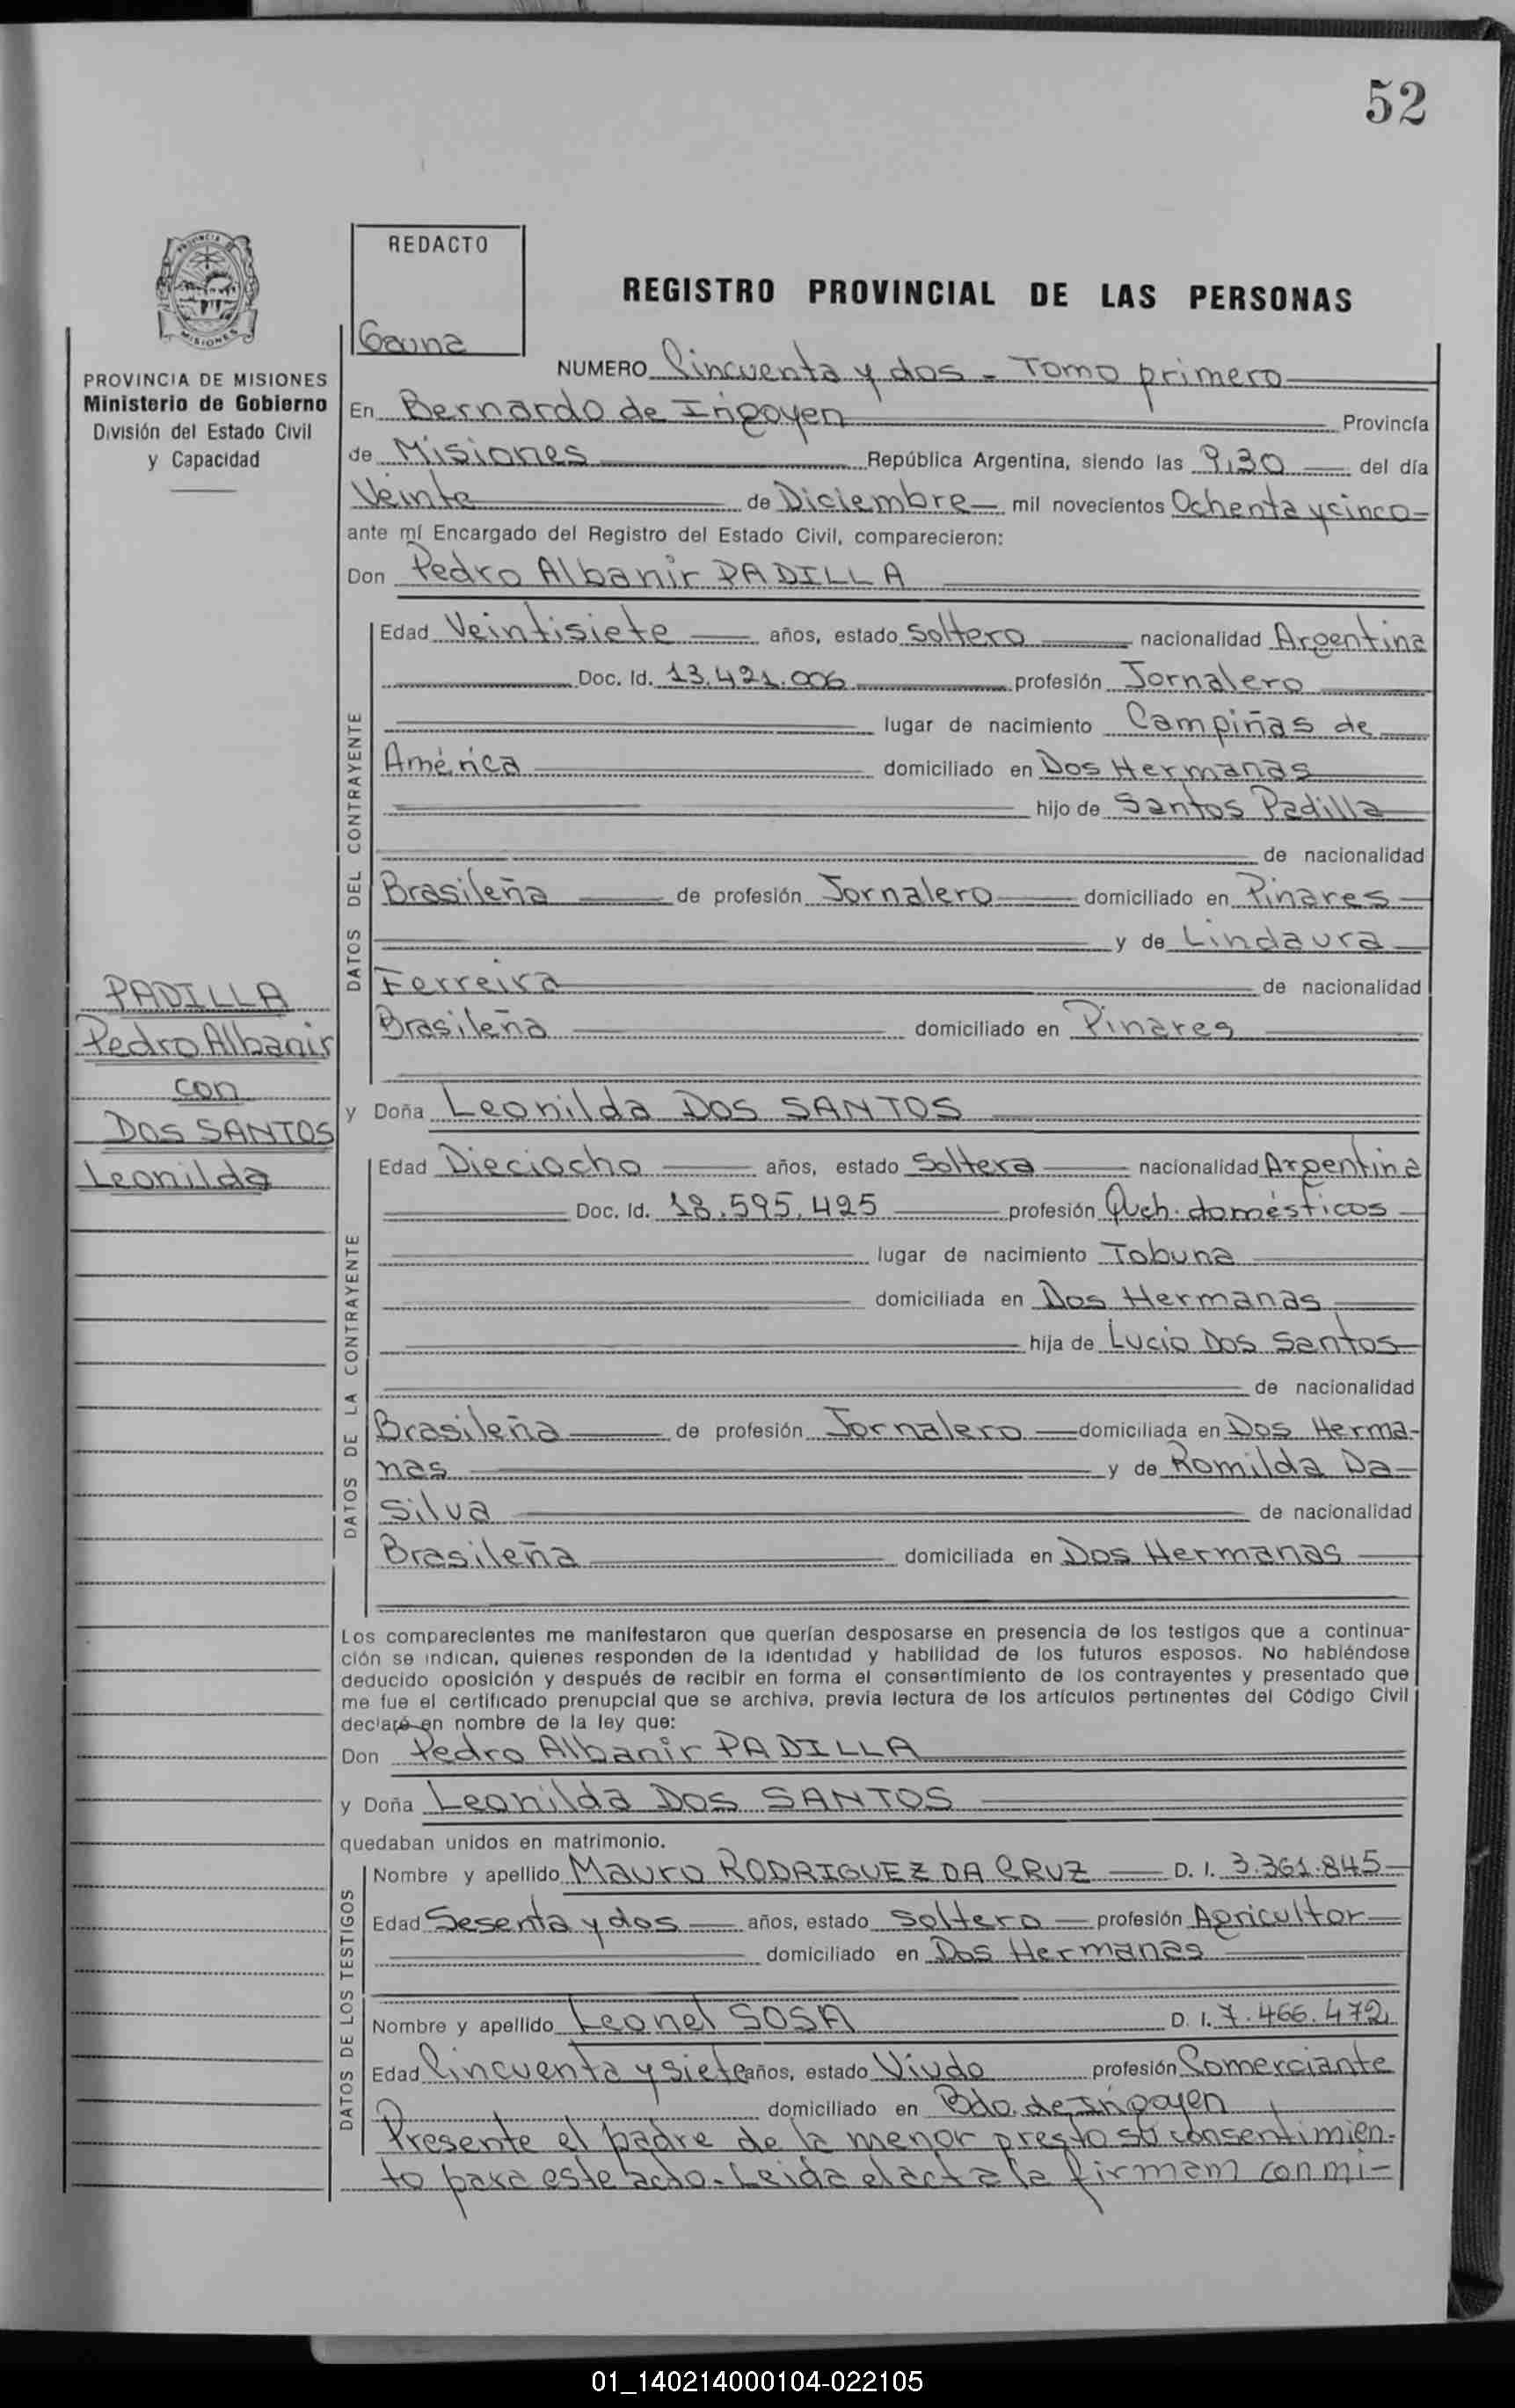 52
REDACTO
REGISTRO PROVINCIAL DE LAS PERSONAS
PROVINCIA MISIONES
Gauna
PROVINCIA DE MISIONES
Ministerio de Gobierno
División del Estado Civil
y Capacidad
NUMERO Cincuenta y dos - Tomo primero
En Bernardo de Irigoyen Provincia
de Misiones República Argentina, siendo las 9,30 del día
Veinte de Diciembre mil novecientos Ochenta y cinco
ante mí Encargado del Registro del Estado Civil, comparecieron:
Don Pedro Albanir PADILLA
DATOS DEL CONTRAYENTE
Edad Veintisiete años, estado Soltero nacionalidad Argentina
Doc. Id. 13.421.006 profesión Jornalero
lugar de nacimiento Campiñas de
América domiciliado en Dos Hermanas
hijo de Santos Padilla
de nacionalidad
Brasileña de profesión Jornalero domiciliado en Pinares
y de Lindaura
Ferreira de nacionalidad
Brasileña domiciliado en Pinares
PADILLA
Pedro Albanir
con
DOS SANTOS
Leonilda
y Doña Leonilda DOS SANTOS
DATOS DE LA CONTRAYENTE
Edad Dieciocho años, estado Soltera nacionalidad Argentina
Doc. Id. 18.595.495 profesión Queh. domésticos
lugar de nacimiento Tobuna
domiciliada en Dos Hermanas
hija de Lucio Dos Santos
de nacionalidad
Brasileña de profesión Jornalero domiciliada en Dos Herma-
nas y de Romilda Da
Silva de nacionalidad
Brasileña domiciliada en Dos Hermanas
Los comparecientes me manifestaron que querían desposarse en presencia de los testigos que a continua-
ción se indican, quienes responden de la identidad y habilidad de los futuros esposos. No habiéndose
deducido oposición y después de recibir en forma el consentimiento de los contrayentes y presentado que
me fue el certificado prenupcial que se archiva, previa lectura de los artículos pertinentes del Código Civil
declaré en nombre de la ley que:
Don Pedro Albanir PADILLA
y Doña Leonilda DOS SANTOS
quedaban unidos en matrimonio.
DATOS DE LOS TESTIGOS
Nombre y apellido Mauro RODRIGUEZ DA CRUZ D. I. 3.361.845
Edad Sesenta y dos años, estado Soltero profesión Agricultor
domiciliado en Dos Hermanas
Nombre y apellido Leonel SOSA D. I. 7.466.472
Edad Cincuenta y siete años, estado Viudo profesión Comerciante
domiciliado en Bdo. de Irigoyen
Presente el padre de la menor presto su consentimien-
to para este acto. Leida el acta la firmam con mi-
01_140214000104-022105